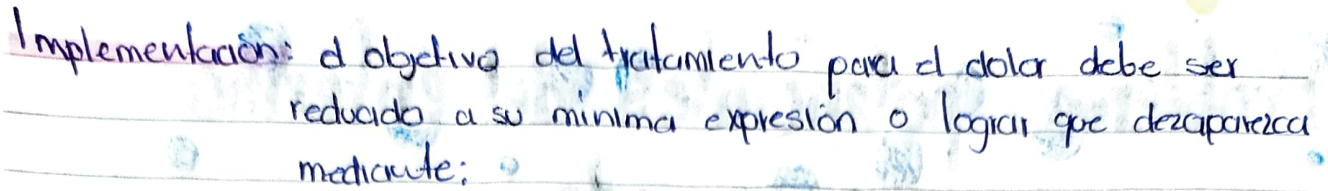 Implementación: el objetivo del tratamiento para el dolor debe ser
reducido a su mínima expresión o lograr que dezaparezca
mediante: